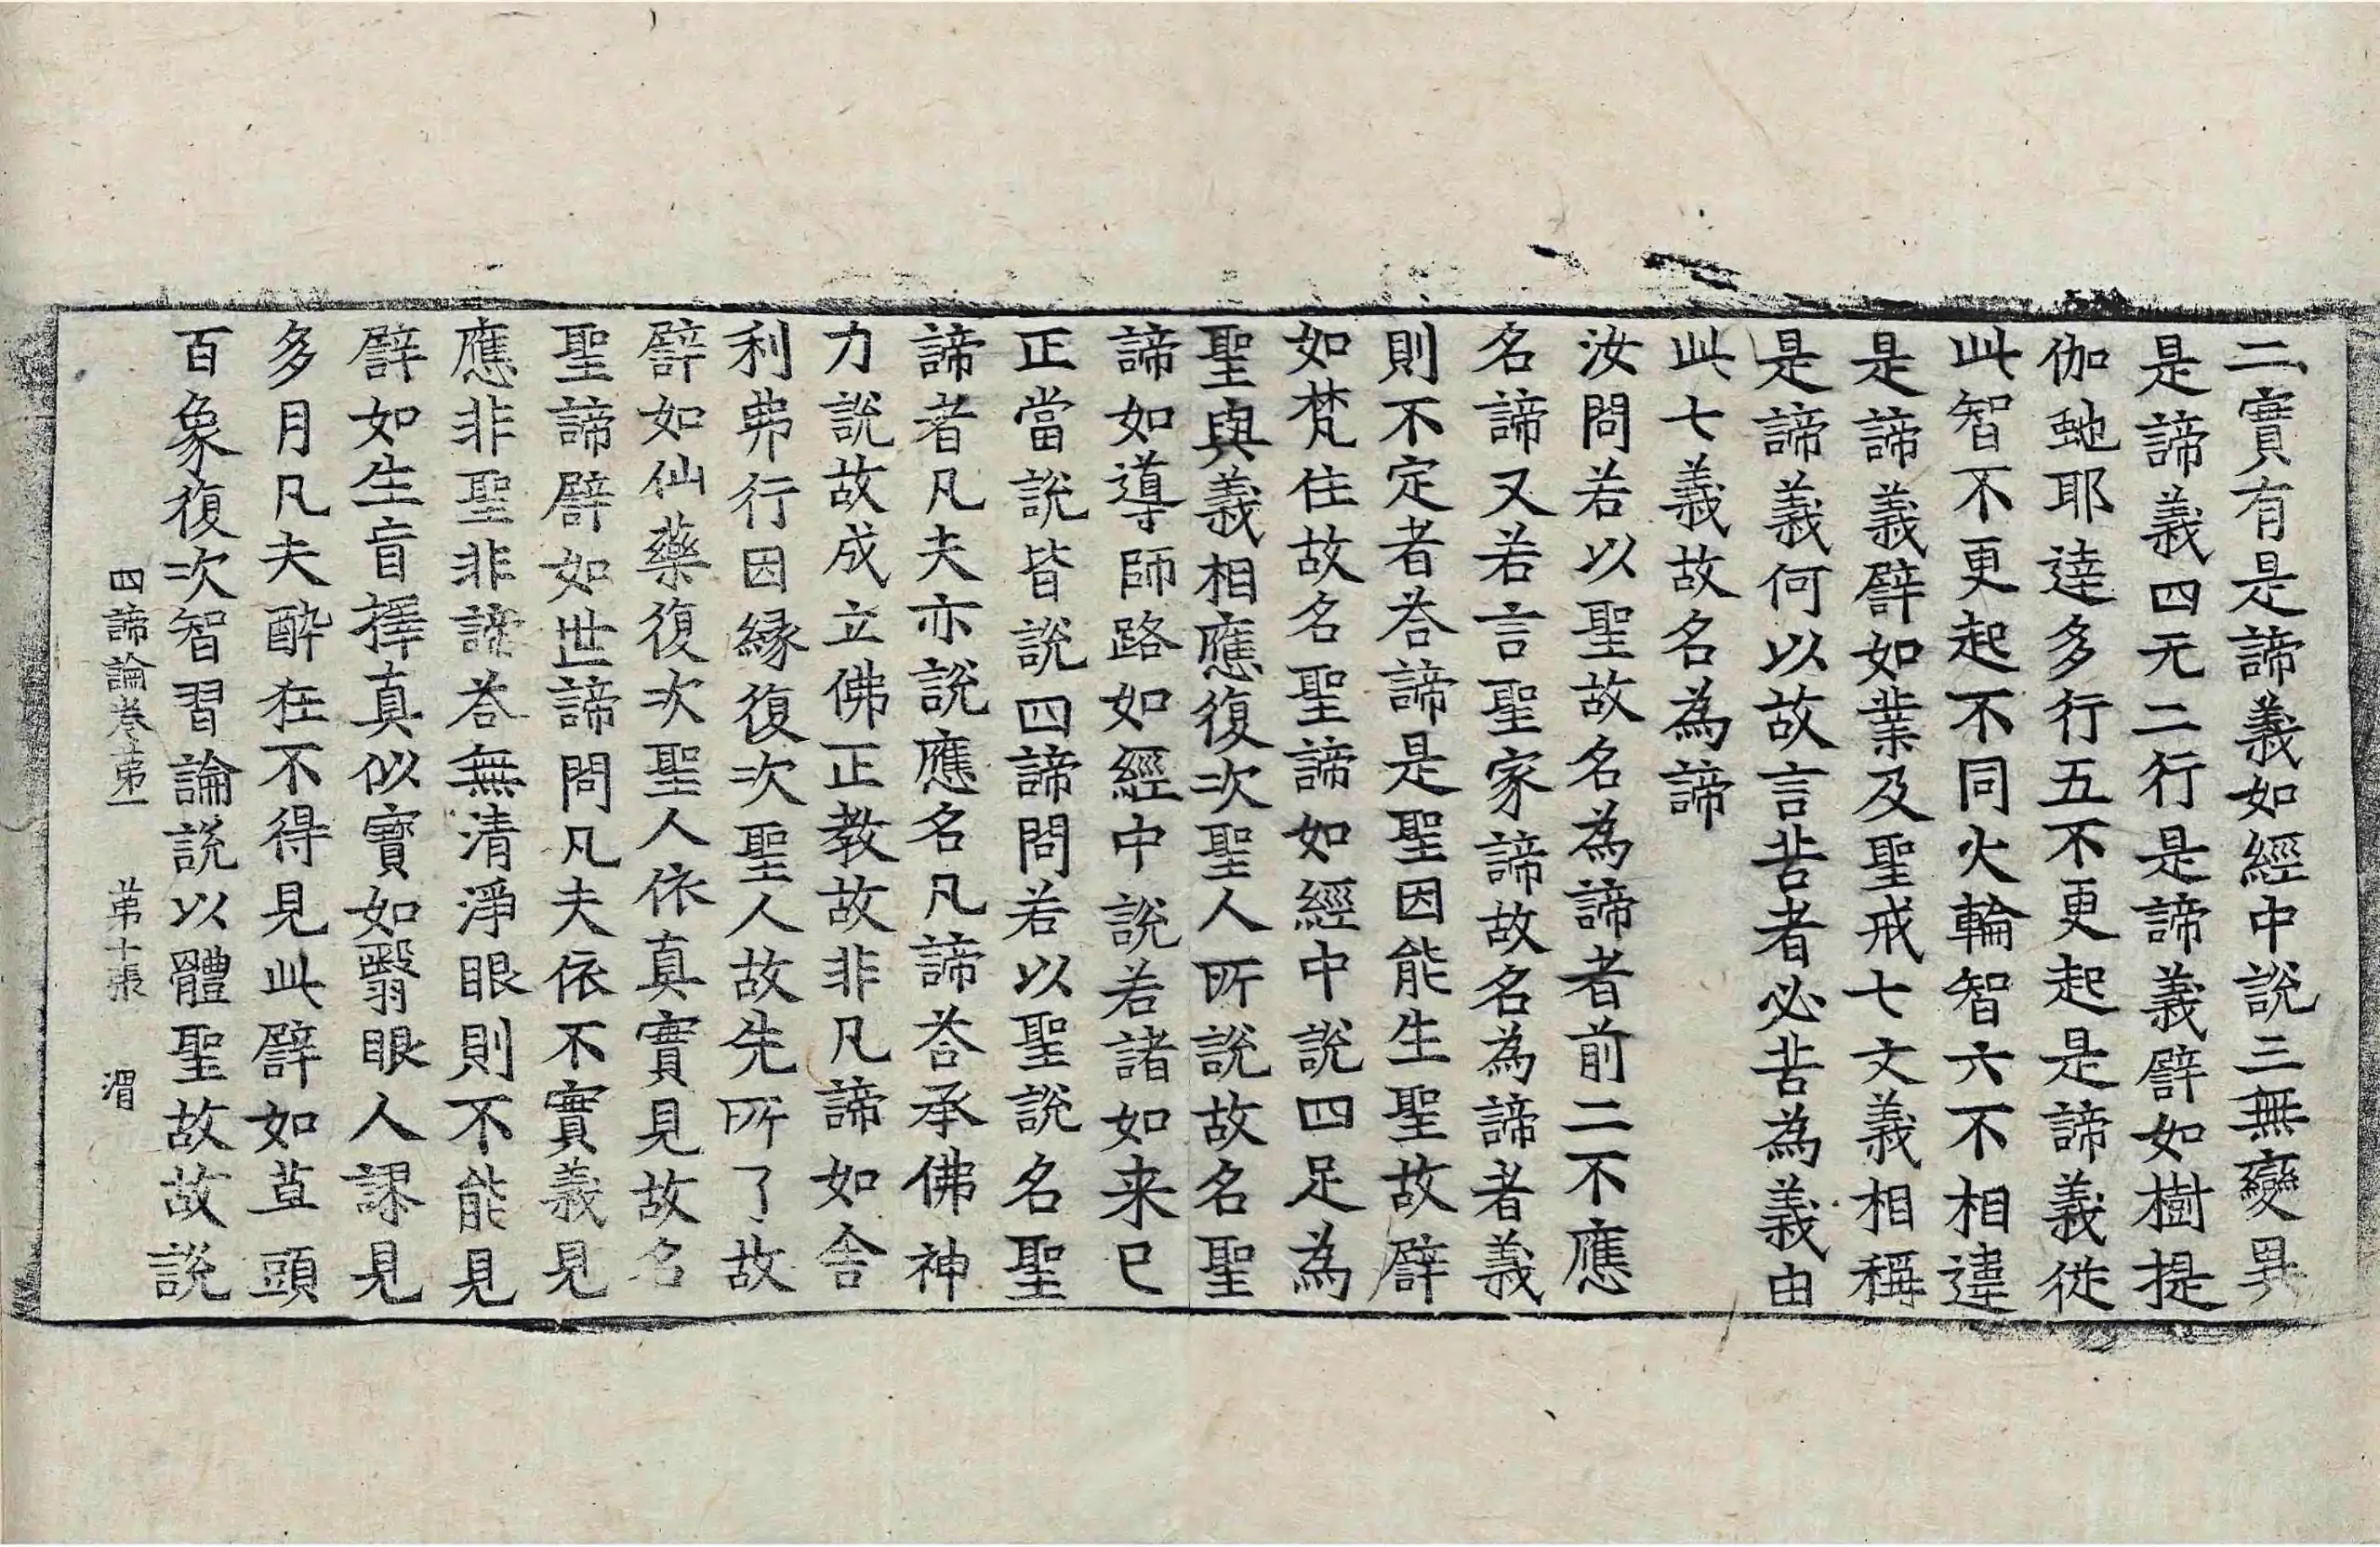 二實有是諦義如經中說三無變異
是諦義四无二行是諦義譬如樹提
伽虵耶達多行五不更起是諦義從
此智不更起不同火輪智六不相違
是諦義譬如業及聖戒七文義相稱
是諦義何以故言苦者必苦為義由
此七義故名為諦
汝問若以聖故名為諦者前二不應
名諦又若言聖家諦故名為諦者義
則不定者荅諦是聖因能生聖故譬
如梵住故名聖諦如經中說四足為
聖與義相應復次聖人所說故名聖
諦如導師路如經中說若諸如来已
正當說皆說四諦問若以聖說名聖
諦者凡夫亦說應名凡諦荅承佛神
力說故成立佛正教故非凡諦如舍
利弗行因緣復次聖人故先所了故
譬如仙藥復次聖人依真實見故名
聖諦譬如世諦問凡夫依不實義見
應非聖非諦荅無清淨眼則不能見
譬如生盲擇真似實如翳眼人謬見
多月凡夫酔狂不得見此譬如荁頭
百象復次智習論說以體聖故故說
四諦論卷苐一 苐十張 渭